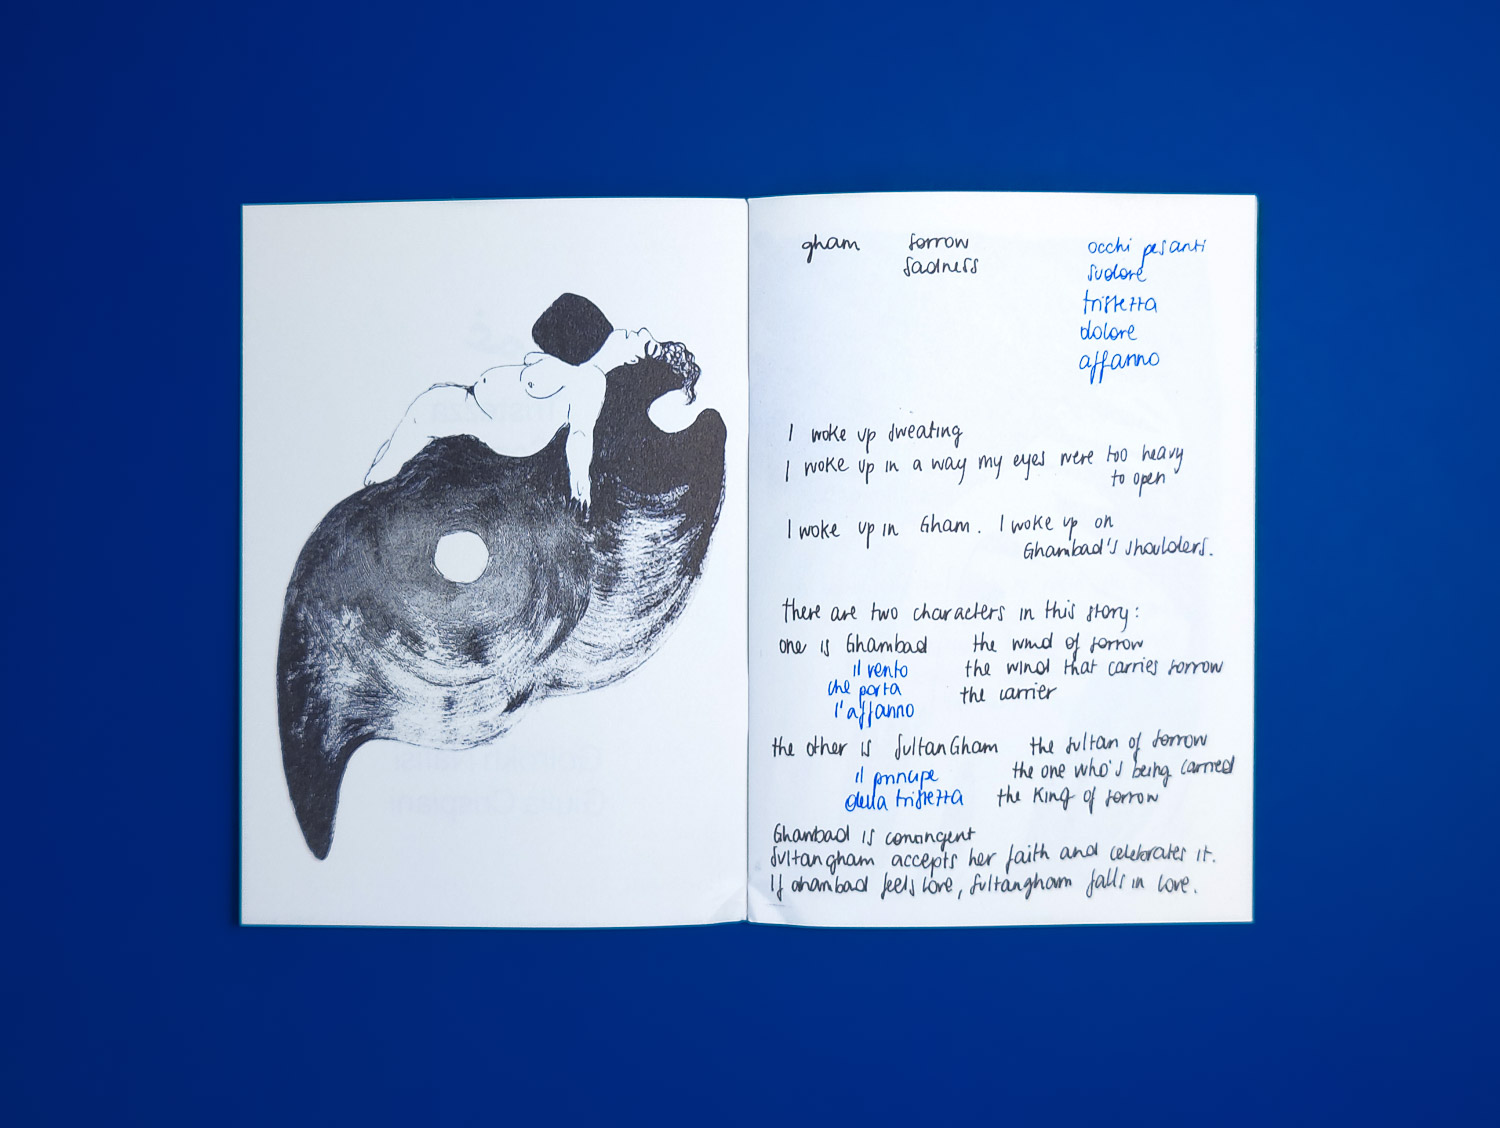 gham sorrow
sadness
occhi pesanti
sudore
tristezza
dolore
affanno
I woke up sweating
I woke up in a way my eyes were too heavy
to open
I woke up in Gham. I woke up on
Ghambad's shoulders.
there are two characters in this story:
one is Ghambad the wind of sorrow
il vento the wind that carries sorrow
che porta the carrier
l'affanno
the other is SultanGham the sultan of sorrow
il principe the one who's being carried
della tristezza the King of sorrow
Ghambad is contingent
Sultangham accepts her faith and celebrates it.
If Ghambad feels love, Sultangham falls in love.